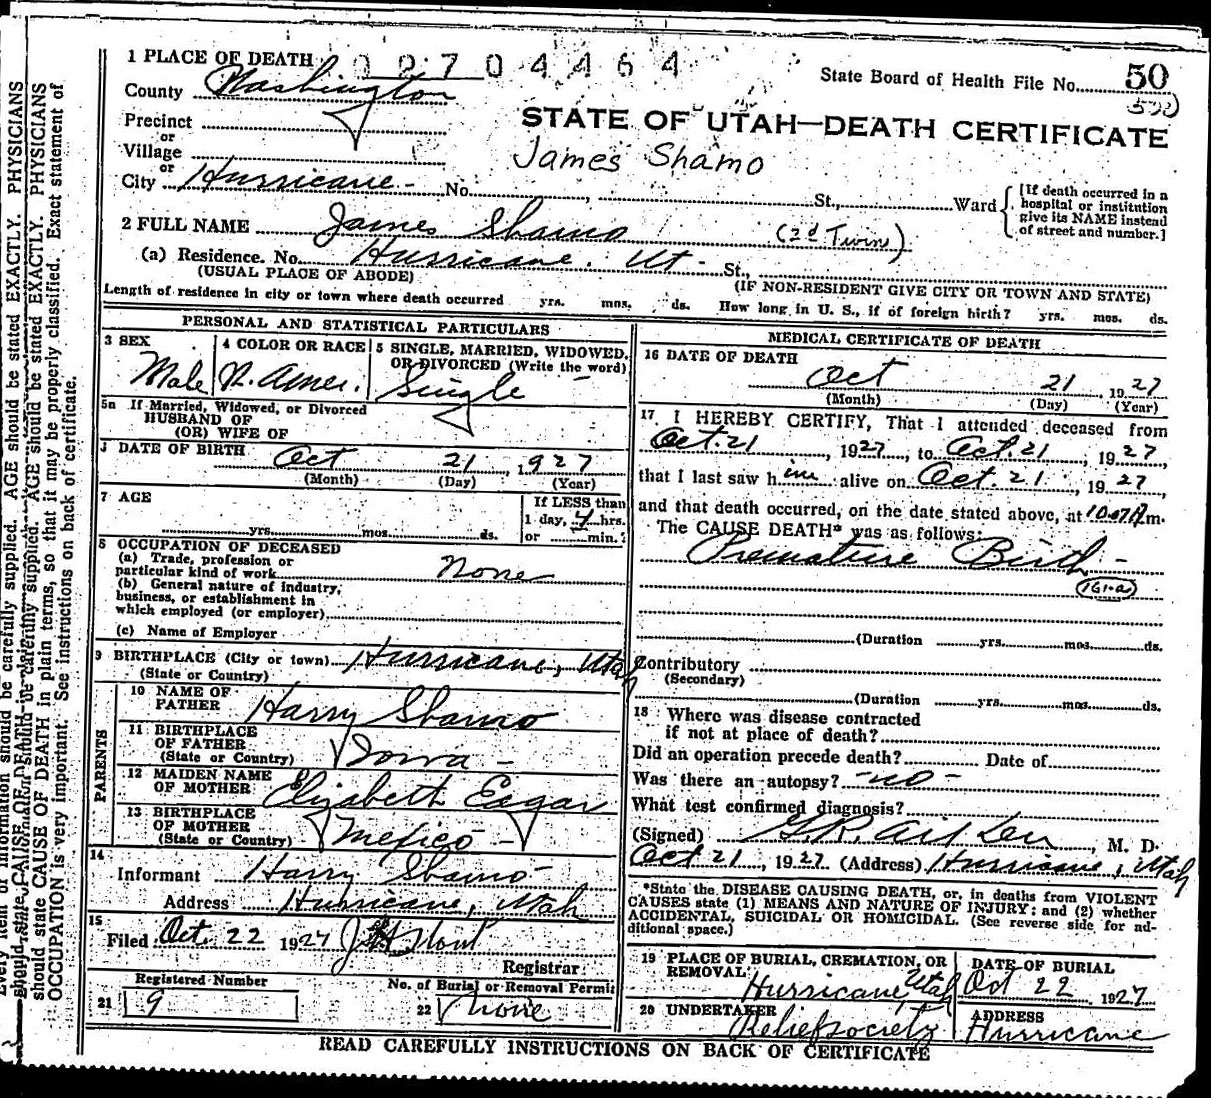 1 PLACE OF DEATH 02704464
State Board of Health File No. 50
County Washington
STATE OF UTAH—DEATH CERTIFICATE
Precinct
or
Village
James Shamo
or
City Hurricane - No. St., Ward
[If death occurred in a
hospital or institution
give its NAME instead
of street and number.]
2 FULL NAME James Shamo (2d Twins)
(a) Residence. No. Hurricane. Ut - St.,
(USUAL PLACE OF ABODE) (IF NON-RESIDENT GIVE CITY OR TOWN AND STATE)
Length of residence in city or town where death occurred yrs. mos. ds. How long in U. S., if of foreign birth? yrs. mos. ds.
PERSONAL AND STATISTICAL PARTICULARS
3 SEX
Male
4 COLOR OR RACE
Amer.
5 SINGLE, MARRIED, WIDOWED,
OR DIVORCED (Write the word)
Single
5a If Married, Widowed, or Divorced
HUSBAND OF
(OR) WIFE OF
DATE OF BIRTH Oct 21, 1927
(Month) (Day) (Year)
7 AGE
yrs. mos. ds.
If LESS than
1 day, 4 hrs.
or min.?
8 OCCUPATION OF DECEASED
(a) Trade, profession or
particular kind of work None
(b) General nature of industry,
business, or establishment in
which employed (or employer)
(c) Name of Employer
9 BIRTHPLACE (City or town) Hurricane, Utah
(State or Country)
PARENTS
10 NAME OF
FATHER Harry Shamo
11 BIRTHPLACE
OF FATHER
(State or Country) Iowa -
12 MAIDEN NAME
OF MOTHER Elizabeth Eagar
13 BIRTHPLACE
OF MOTHER
(State or Country) Mexico -
14
Informant Harry Shamo
Address Hurricane, Utah
15
Filed Oct. 22 1927
Registrar
Registered Number
21 9
No. of Burial or Removal Permit
22 None
MEDICAL CERTIFICATE OF DEATH
16 DATE OF DEATH
Oct 21, 1927
(Month) (Day) (Year)
17 I HEREBY CERTIFY, That I attended deceased from
Oct. 21, 1927, to Oct. 21, 1927,
that I last saw him alive on Oct. 21, 1927,
and that death occurred, on the date stated above, at m.
The CAUSE DEATH* was as follows:
Premature Birth -
161-a
(Duration yrs. mos. ds.
Contributory
(Secondary)
(Duration yrs. mos. ds.
18 Where was disease contracted
if not at place of death?
Did an operation precede death? Date of
Was there an autopsy? -no-
What test confirmed diagnosis?
(Signed) , M. D.
Oct 21, 1927. (Address) Hurricane, Utah
*State the DISEASE CAUSING DEATH, or, in deaths from VIOLENT
CAUSES state (1) MEANS AND NATURE OF INJURY; and (2) whether
ACCIDENTAL, SUICIDAL OR HOMICIDAL. (See reverse side for ad-
ditional space.)
19 PLACE OF BURIAL, CREMATION, OR
REMOVAL
Hurricane, Utah
DATE OF BURIAL
Oct 22 1927
20 UNDERTAKER
Relief society
ADDRESS
Hurricane
READ CAREFULLY INSTRUCTIONS ON BACK OF CERTIFICATE
should be carefully supplied. AGE should be stated EXACTLY. PHYSICIANS
should state CAUSE OF DEATH in plain terms, so that it may be properly classified. Exact statement of
OCCUPATION is very important. See instructions on back of certificate.